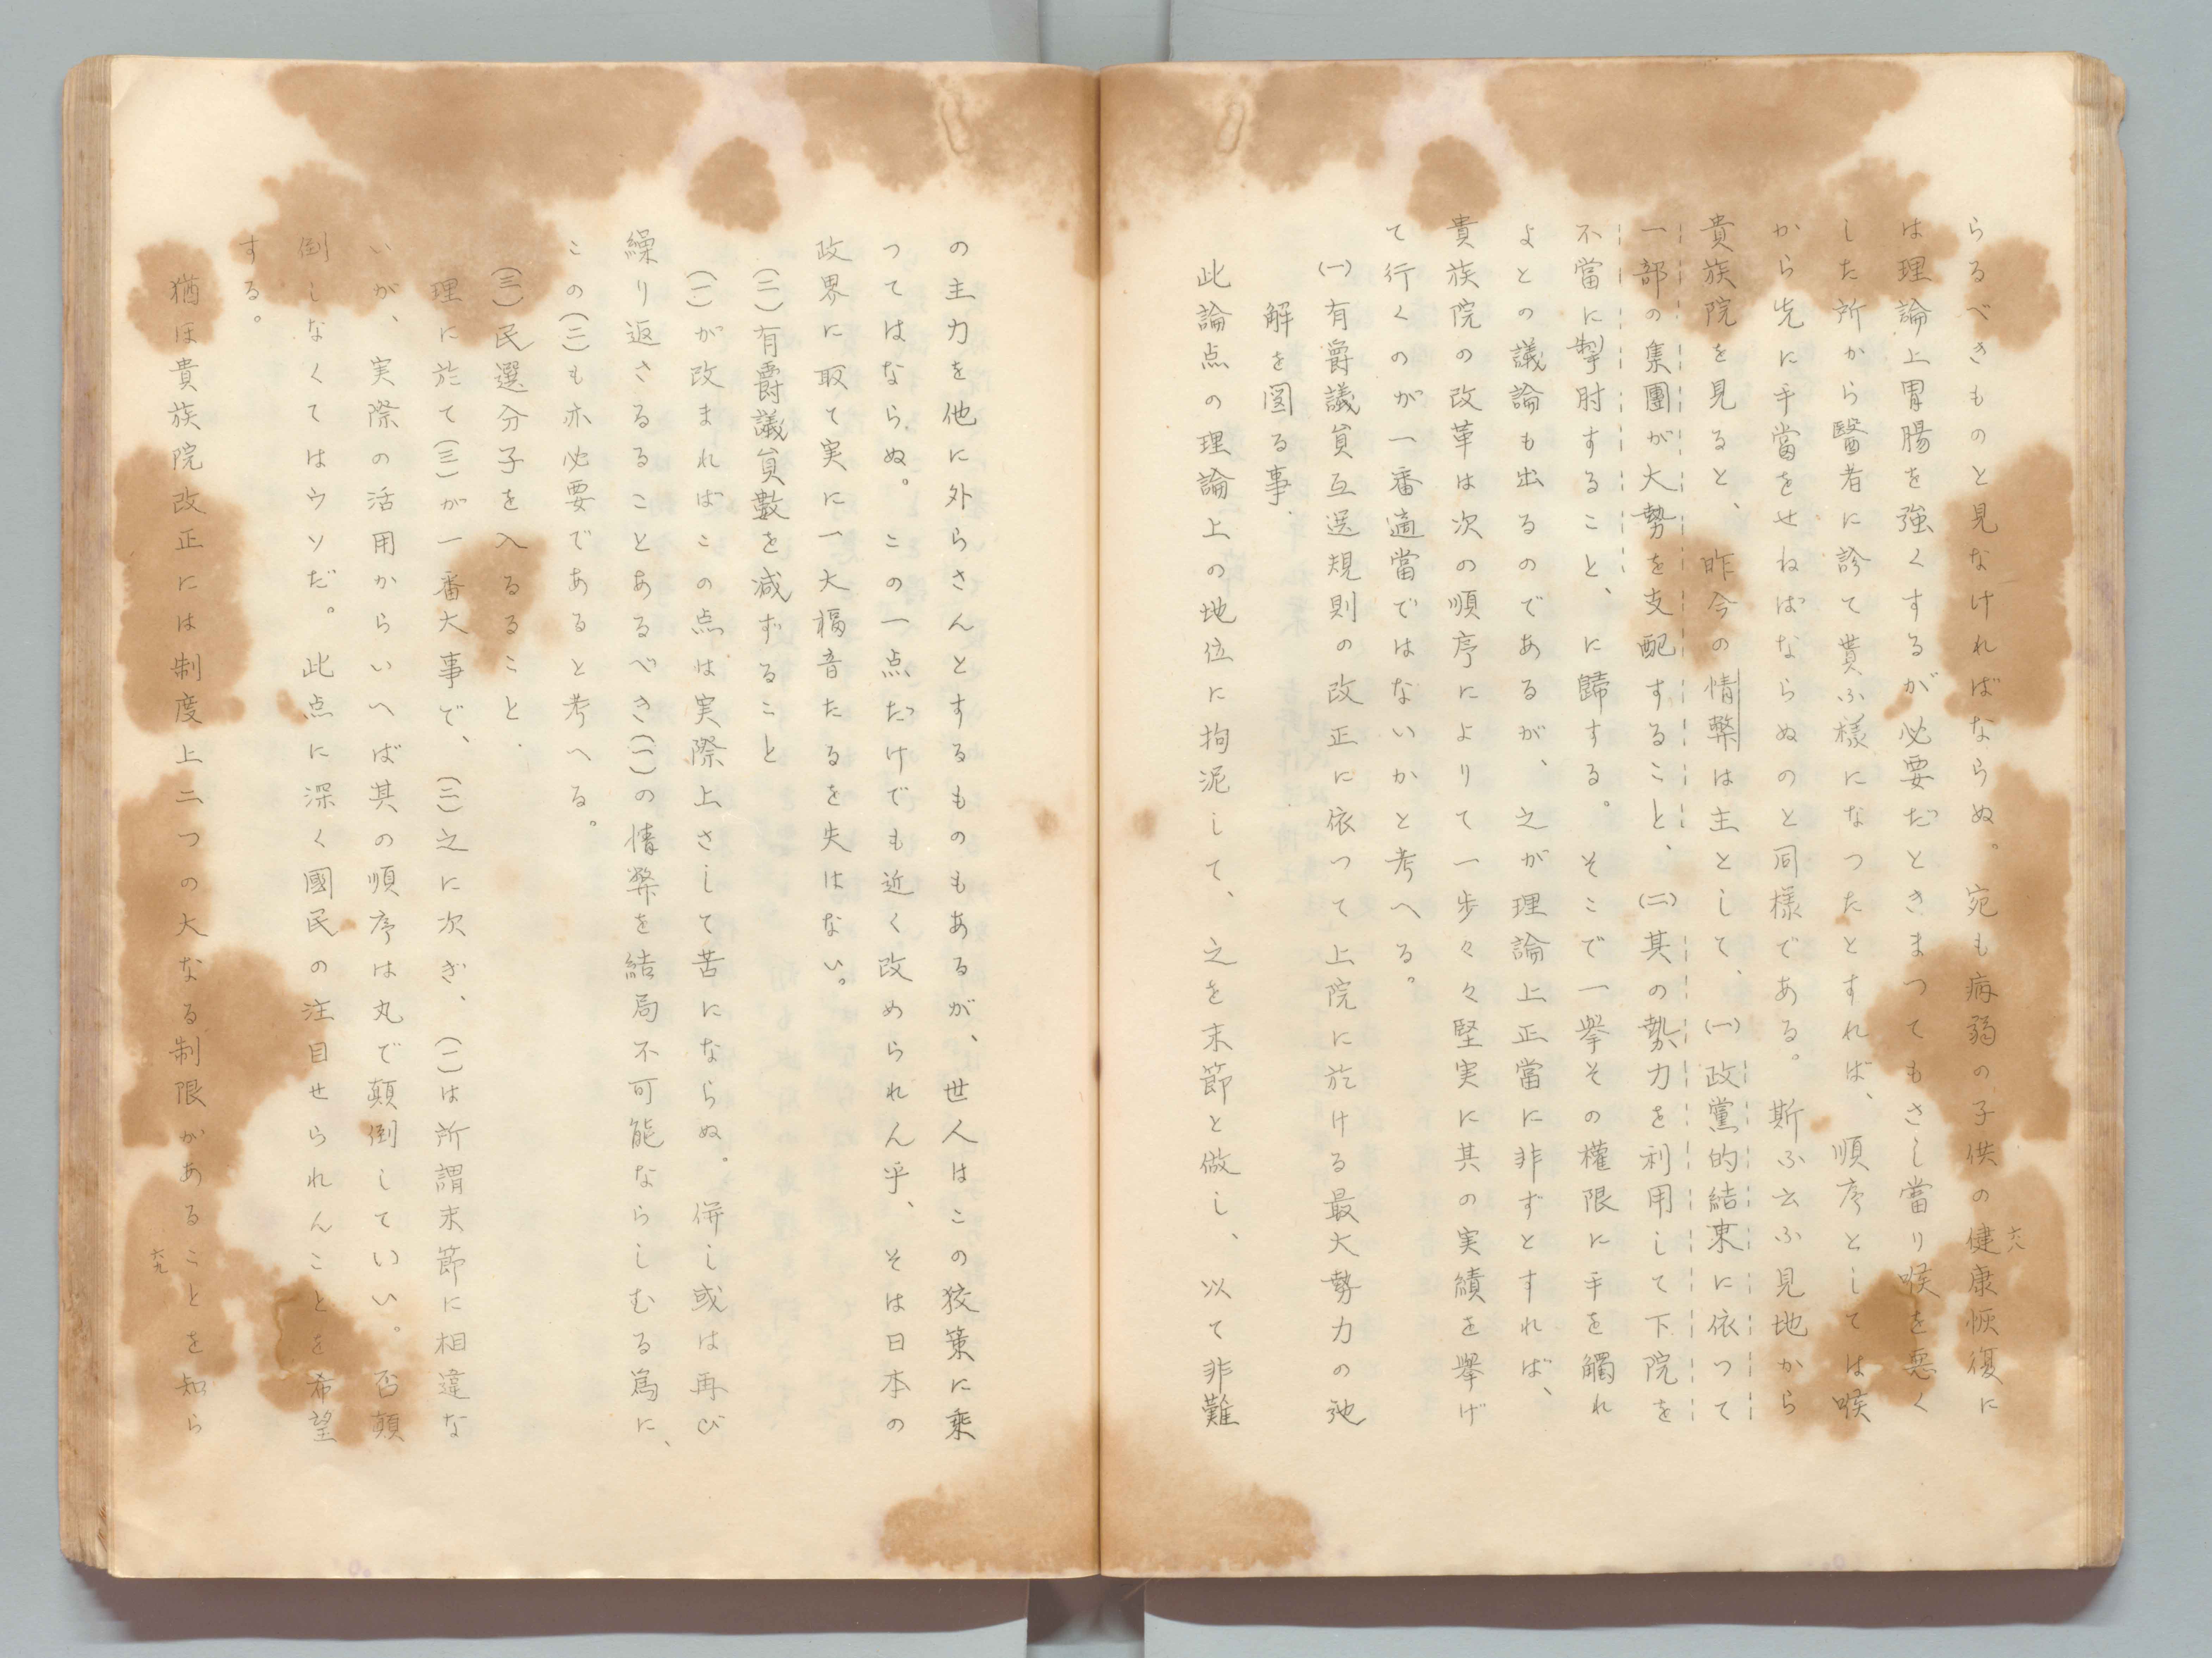 らるべきものと見なければならぬ。宛も病弱の子供の健康恢復に
は理論上胃腸を強くするが必要だときまつてもさし當り喉を悪く
した所から醫者に診て貰ふ様になつたとすれば、順序としては喉
から先に手當をせねばならぬのと同様である。斯ふ云ふ見地から
貴族院を見ると、昨今の情弊は主として、(一)政黨的結束に依つて
一部の集團が大勢を支配すること、(二)其の勢力を利用して下院を
不當に掣肘すること、に歸する。そこで一擧その權限に手を觸れ
よとの議論も出るのであるが、之が理論上正當に非ずとすれば、
貴族院の改革は次の順序によりて一歩々々堅実に其の実績を擧げ
て行くのが一番適當ではないかと考へる。
(一)有爵議員互选規則の改正に依つて上院に於ける最大勢力の弛
解を圖る事.
此論点の理論上の地位に拘泥して、之を末節と做し、以て非難
六八
の主力を他に外らさんとするものもあるが、世人はこの狡策に乘
つてはならぬ。この一点だけでも近く改められん乎、そは日本の
政界に取て実に一大福音たるを失はない。
(二)有爵議員數を減ずること
(一)が改まればこの点は実際上さして苦にならぬ。併し或は再び
繰り返さるることあるべき(一)の情弊を結局不可能ならしむる為に、
この(二)も亦必要であると考へる。
(三)民選分子を入るること.
理に於て(三)が一番大事で、(二)之に次ぎ、(一)は所謂末節に相違な
いが、実際の活用からいへば其の順序は丸で顛倒していい。否顛
倒しなくてはウソだ。此点に深く國民の注目せられんことを希望
する。
猶ほ貴族院改正には制度上二つの大なる制限があることを知ら
六九